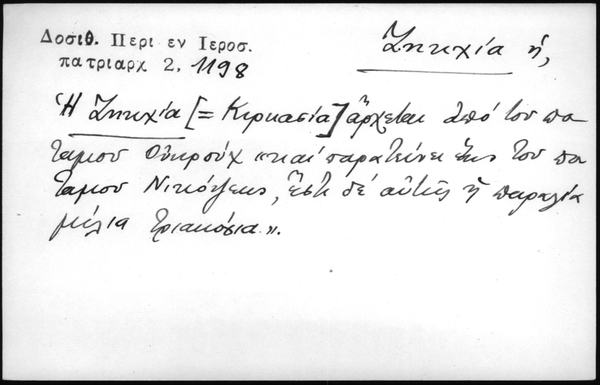 Δοσιθ. Περι εν Ιεροσ.
πατριαρχ 2, 1198
Ζηκχία ἡ,
Ἡ Ζηκχία [= Κιρκασία] ἄρχεται ἀπό του πο-
ταμου Οὐκρούχ «και παρατείνει ἕως του πο
ταμου Νικόψεως, ἔστι δέ αὐτῆς ἡ παραλία
μίλια τριακόσια».